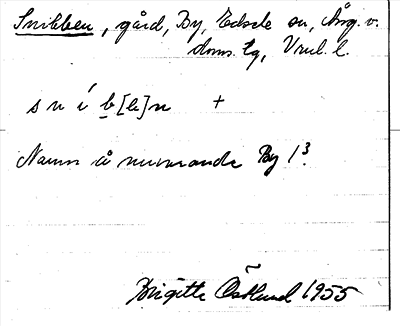 Snibben, gård, By, Eds sn, Ång. v.
doms. lg, Vrml. l.
s n í b [e] n +
Namn å nuvarande By 1³.
Brigitte Östlund 1955